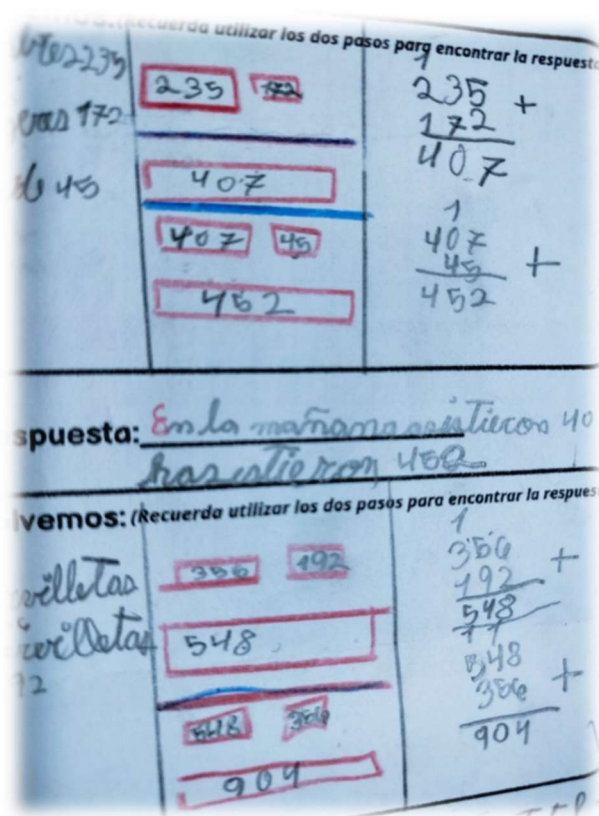 (Recuerda utilizar los dos pasos para encontrar la respuesta
235 172
407
407 45
452
172
45
1
235 +
172
407
1
407
45 +
452
spuesta: En la mañana asistieron 40
452
lvemos: (Recuerda utilizar los dos pasos para encontrar la respues
356 192
548
548 356
904
1
356 +
192
548
11
548
356 +
904